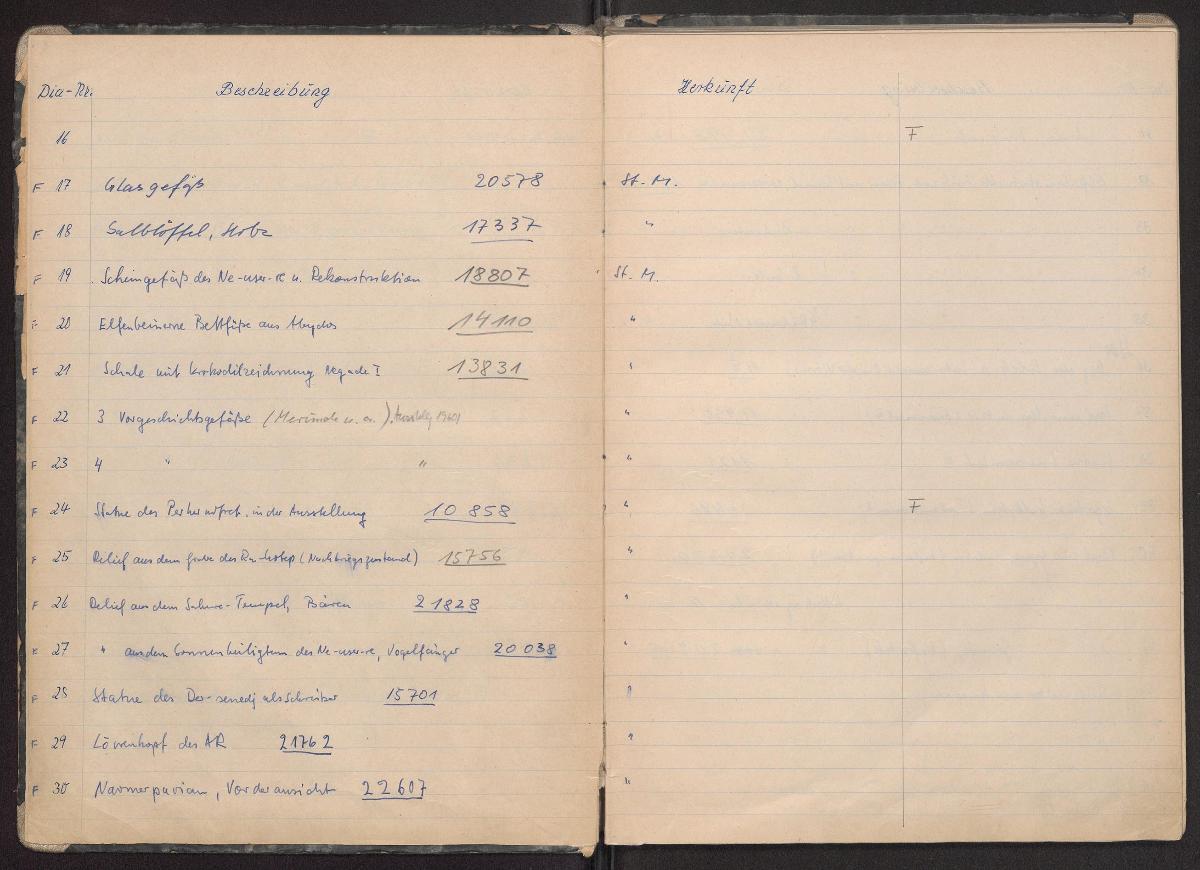 Dia-Nr. Beschreibung Herkunft
16 F
F 17 Glasgefäß 20578 St. M.
F 18 Salblöffel, Holz 17337 "
F 19 Scheingefäß des Ne-user-re u. Rekonstruktion 18807 St. M.
F 20 Elfenbeinerne Bettfüße aus Abydos 14110 "
F 21 Schale mit Krokodilzeichnung Negade I 13831 "
F 22 3 Vorgeschichtsgefäße (Merimde u. a.) "
F 23 4 " " "
F 24 Statue des Perhernofret. in der Ausstellung 10 858 " F
F 25 Relief aus dem Grabe des Ra-hotep (Nachkriegszustand) 15756 "
F 26 Relief aus dem Sahure-Tempel, Bären 21828 "
F 27 " aus dem Sonnenheiligtum des Ne-user-re, Vogelfänger 20 038 "
F 28 Statue des Der-senedj als Schreiber 15701 "
F 29 Löwenkopf des AR 21762 "
F 30 Narmerpavian, Vorderansicht 22607 "